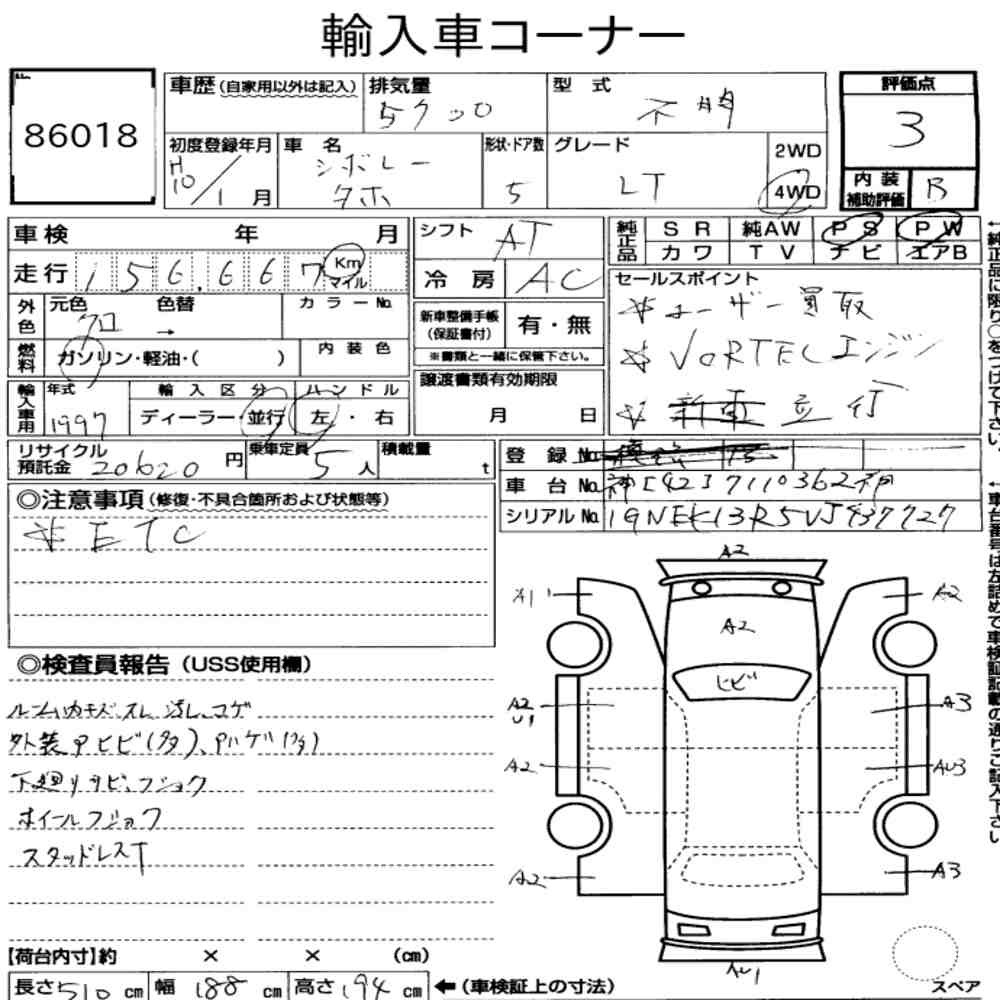 輸入車コーナー
86018
車歴 (自家用以外は記入) 排気量 5700 型式 不明
初度登録年月 H10/1月 車名 シボレー タホ 形状・ドア数 5 グレード LT 2WD 4WD
評価点 3
内装補助評価 B
車検 年 月
走行 156,667 Km マイル
外色 元色 クロ 色替 → カラーNo.
燃料 ガソリン・軽油・( ) 内装色
輸入車用 年式 1997 輸入区分 ディーラー・並行 ハンドル 左・右
リサイクル預託金 20620円 乗車定員 5人 積載量 t
シフト AT
冷房 AC
新車整備手帳(保証書付) 有・無
※書類と一緒に保管下さい。
譲渡書類有効期限
月 日
純正品 SR 純AW PS PW
カワ TV ナビ エアB
セールスポイント
※ユーザー買取
※VORTECエンジン
※ 並行
登録No.
車台No. 神[42]7110362神
シリアルNo. 1GNEK13R5VJ437727
◎注意事項(修復・不具合箇所および状態等)
※ETC
◎検査員報告(USS使用欄)
ルーム内キズ、スレ、汚し、コゲ
外装Pヒビ(多)、Pハゲ(多)
下廻りサビ、フショク
ホイールフショク
スタッドレスT
A2
A1 A2
A2
ヒビ
A2 U1 A3
A2 AU3
A2 A3
AU1
スペア
【荷台内寸】約 × × (cm)
長さ510cm 幅188cm 高さ194cm ←(車検証上の寸法)
←純正品に限り○をつけて下さい。
←車台番号は左詰めで車検証記載の通りご記入下さい